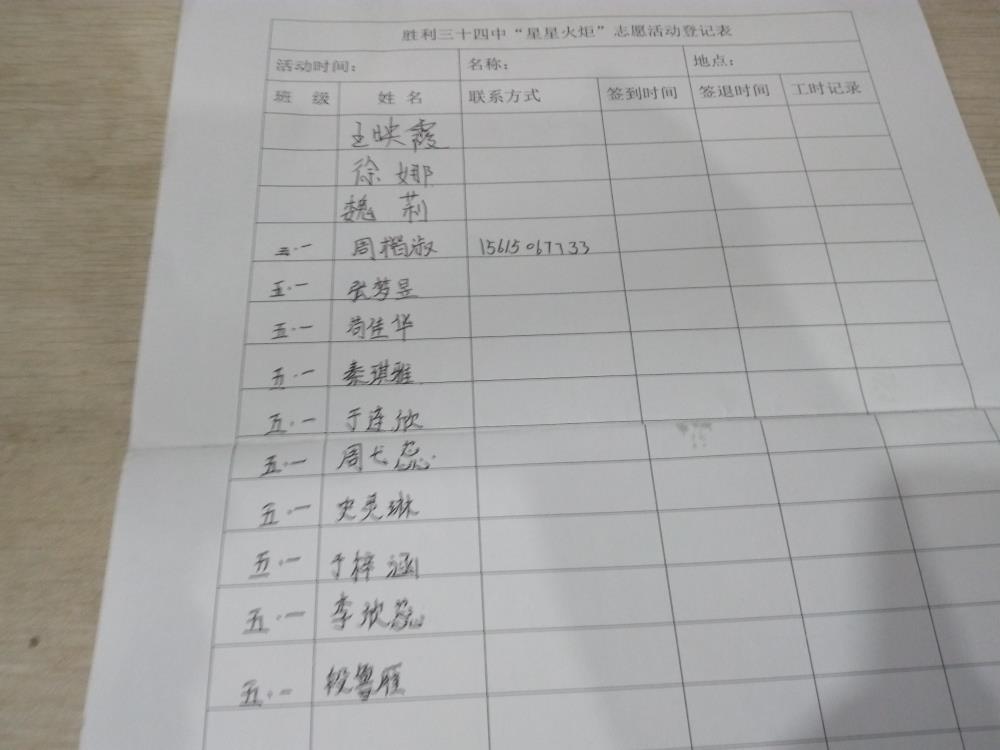 胜利三十四中“星星火炬”志愿活动登记表
活动时间： 名称： 地点：
班 级 姓 名 联系方式 签到时间 签退时间 工时记录
王映霞
徐 娜
魏 莉
五·一 周楷淑 15615067733
五·一 张梦昱
五·一 苟佳华
五·一 秦琪雅
五·一 于连欣
五·一 周弋蕊
五·一 史灵琳
五·一 于梓涵
五·一 李欣蕊
五·一 段粤雁